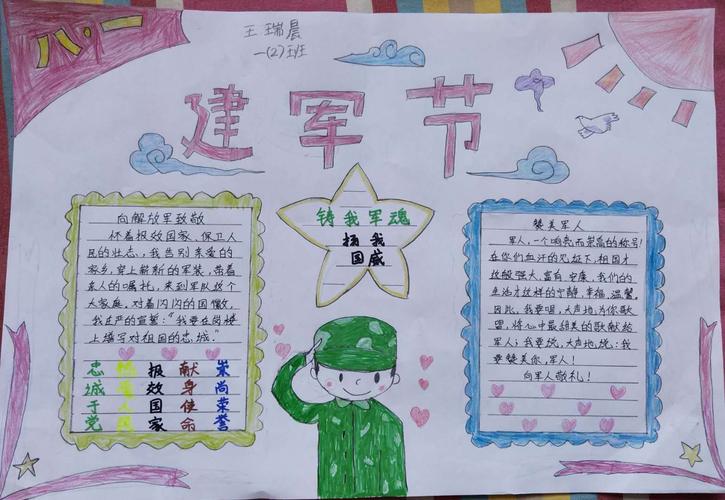 八·一
王瑞晨
一(2)班
建军节
向解放军致敬
怀着报效国家、保卫人
民的壮志，我告别亲爱的
家乡，穿上崭新的军装，带着
亲人的嘱托，来到军队这个
大家庭，对着闪闪的国徽，
我庄严的宣誓：“我要在岗楼
上填写对祖国的忠诚。”
忠 热 报 献 崇
诚 爱 效 身 尚
于 人 国 使 荣
党 民 家 命 誉
铸我军魂
扬我
国威
赞美军人
军人，一个响亮而崇高的称号!
在你们血汗的见证下，祖国才
这般强大、富有、安康，我们的
生活才这样的宁静、幸福、温馨。
因此，我要唱，大声地，为你歌
唱，将心中最甜美的歌献给
军人；我要说，大声地说：我
要赞美你，军人!
向军人敬礼!